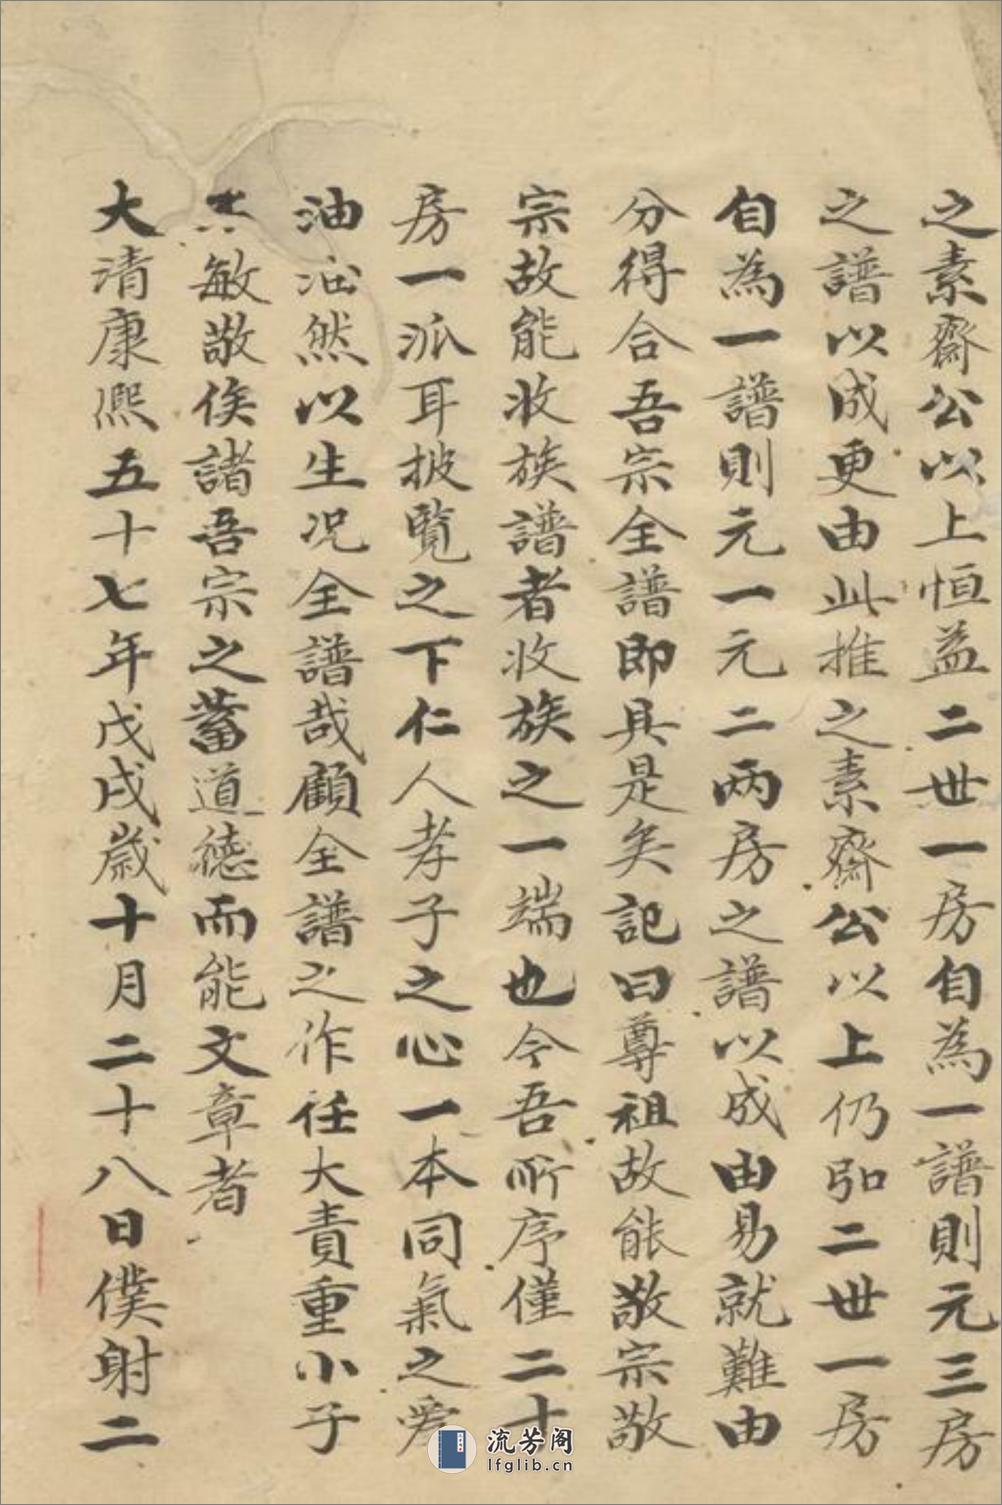 之素齋公以上恒益二世一房自為一譜則元三房
之譜以成更由此推之素齋公以上仍引二世一房
自為一譜則元一元二兩房之譜以成由易就難由
分得合吾宗全譜即具是矣記曰尊祖故能敬宗敬
宗故能收族譜者收族之一端也今吾所序僅二十
房一派耳披覽之下仁人孝子之心一本同氣之愛
油油然以生况全譜哉顧全譜之作任大責重小子
敏敬俟諸吾宗之蓄道德而能文章者
大清康熙五十七年戊戌歲十月二十八日僕射二
流芳阁
lfglib.cn